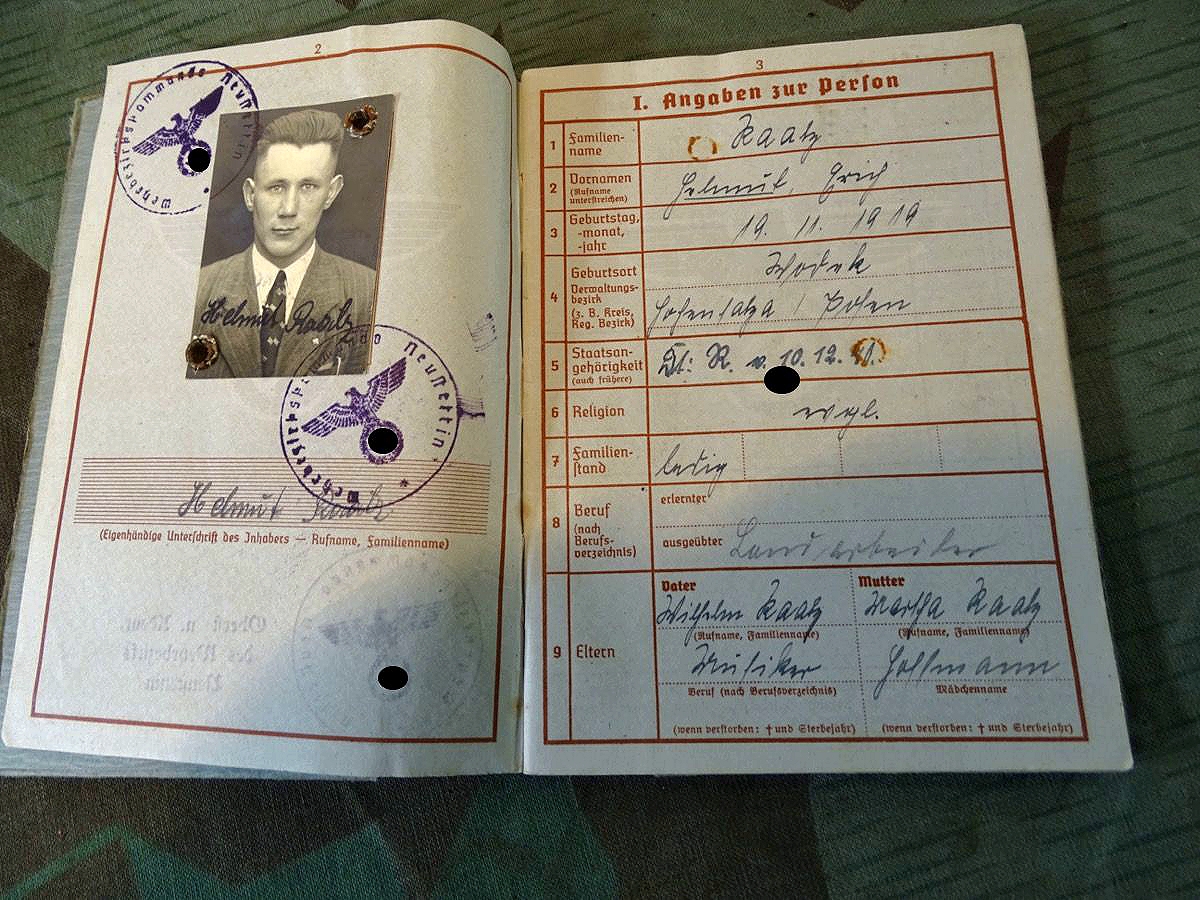 2
Wehrbezirkskommando Neustettin
Helmut Raatz
Wehrbezirksk ndo Neustettin
Helmut Raatz
(Eigenhändige Unterschrift des Inhabers — Rufname, Familienname)
3
I. Angaben zur Person
1 Familien-
name
Raatz
2 Vornamen
(Rufname
unterstreichen)
Helmut, Erich
3 Geburtstag,
-monat,
-jahr
19. 11. 1919
4 Geburtsort
Verwaltungs-
bezirk
(z. B. Kreis,
Reg. Bezirk)
Wodek
Hohensalza / Posen
5 Staatsan-
gehörigkeit
(auch frühere)
R. v. 10. 12.
6 Religion
evgl.
7 Familien-
stand
ledig
8 Beruf
(nach
Berufs-
verzeichnis)
erlernter
ausgeübter Landarbeiter
9 Eltern
Vater
Wilhelm Raatz
(Rufname, Familienname)
Musiker
Beruf (nach Berufsverzeichnis)
(wenn verstorben: † und Sterbejahr)
Mutter
Martha Raatz
(Rufname, Familienname)
Hoffmann
Mädchenname
(wenn verstorben: † und Sterbejahr)